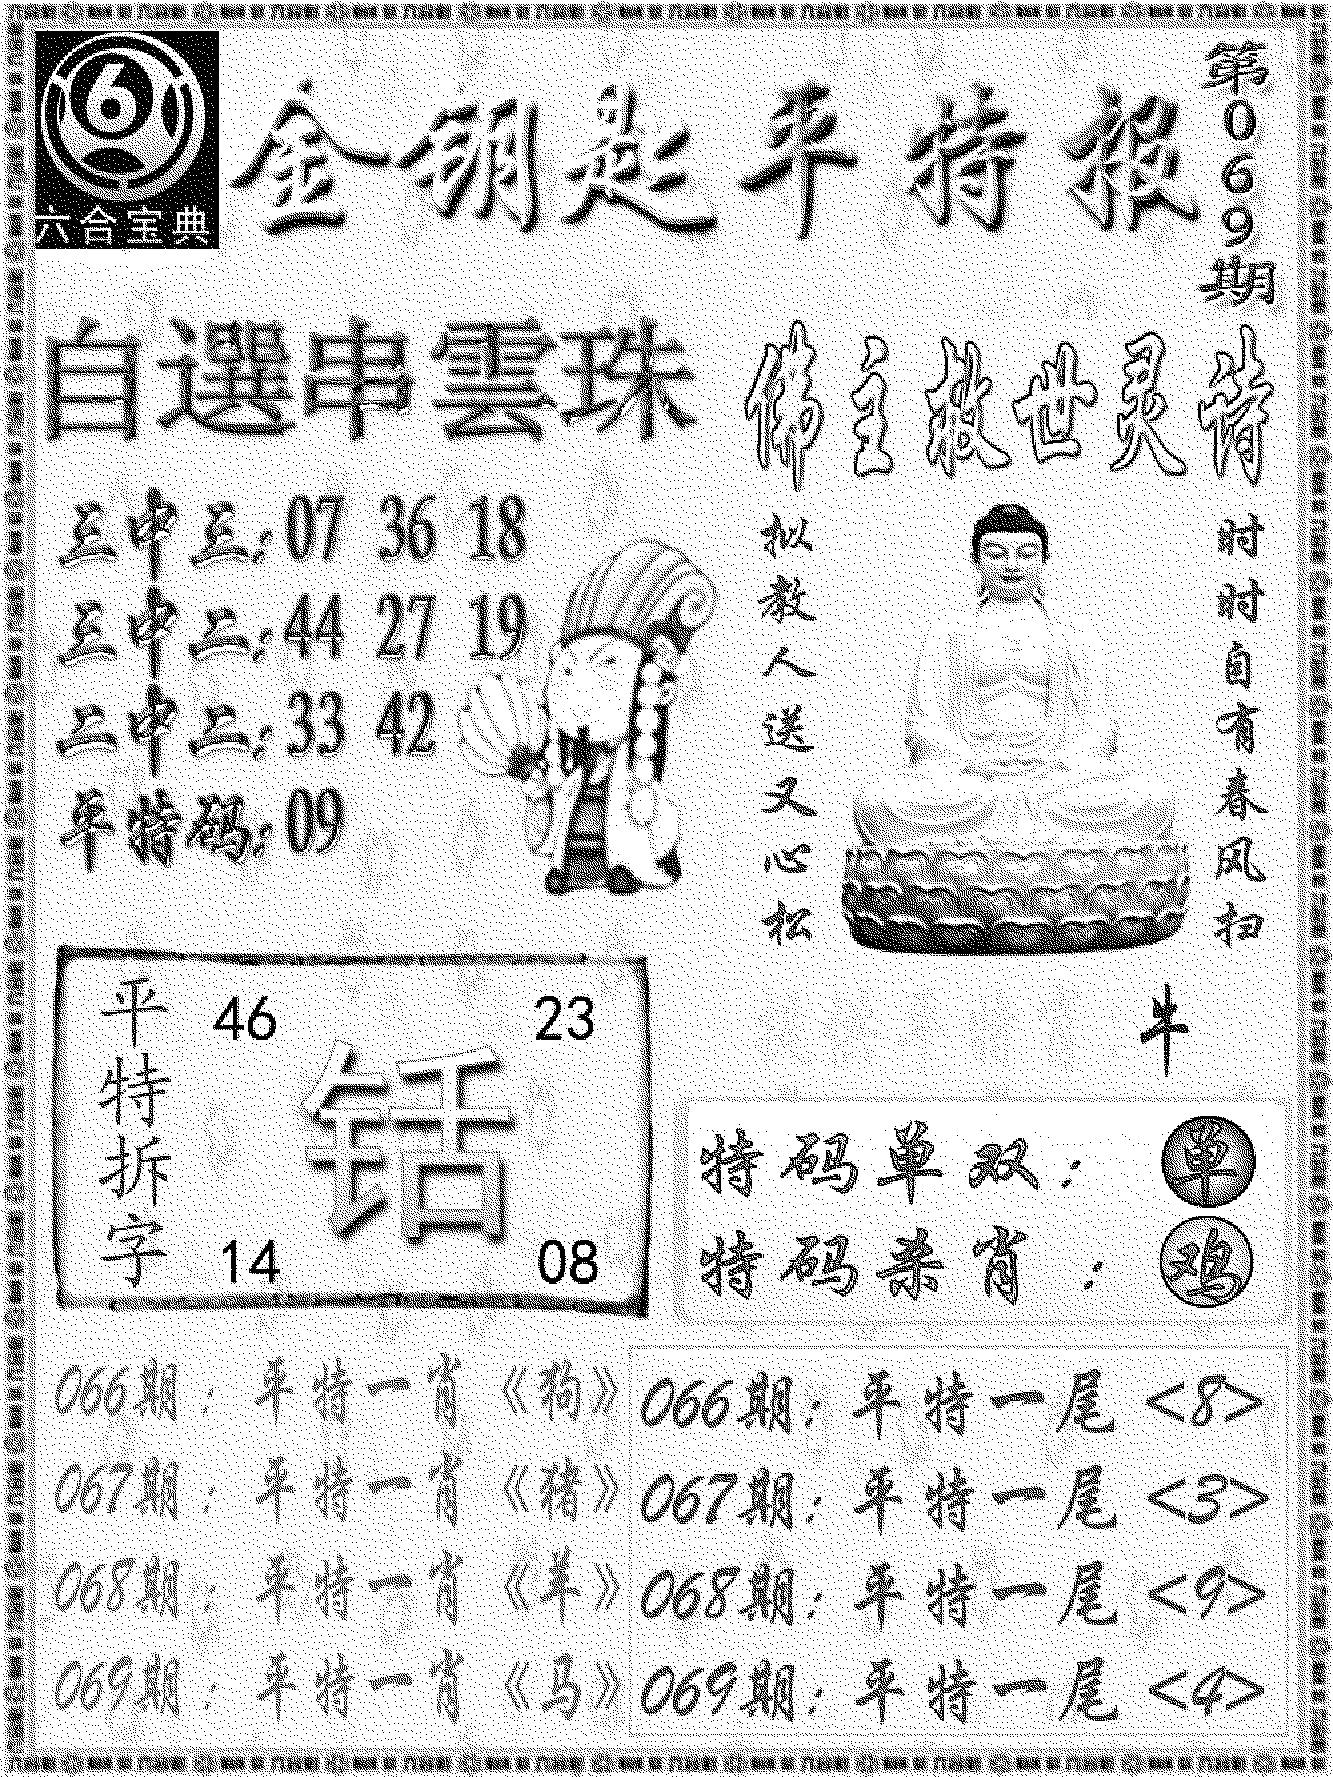 6
六合宝典
金钥匙平特报
第069期
自選串雲珠
三中三:07 36 18
三中二:44 27 19
二中二:33 42
平特码:09
佛主救世灵诗
时时自有春风扫
拟教人送又心松
牛
平特拆字
46 23
铦
14 08
特码单双:单
特码杀肖:鸡
066期:平特一肖《狗》
067期:平特一肖《猪》
068期:平特一肖《羊》
069期:平特一肖《马》
066期:平特一尾<8>
067期:平特一尾<3>
068期:平特一尾<9>
069期:平特一尾<4>